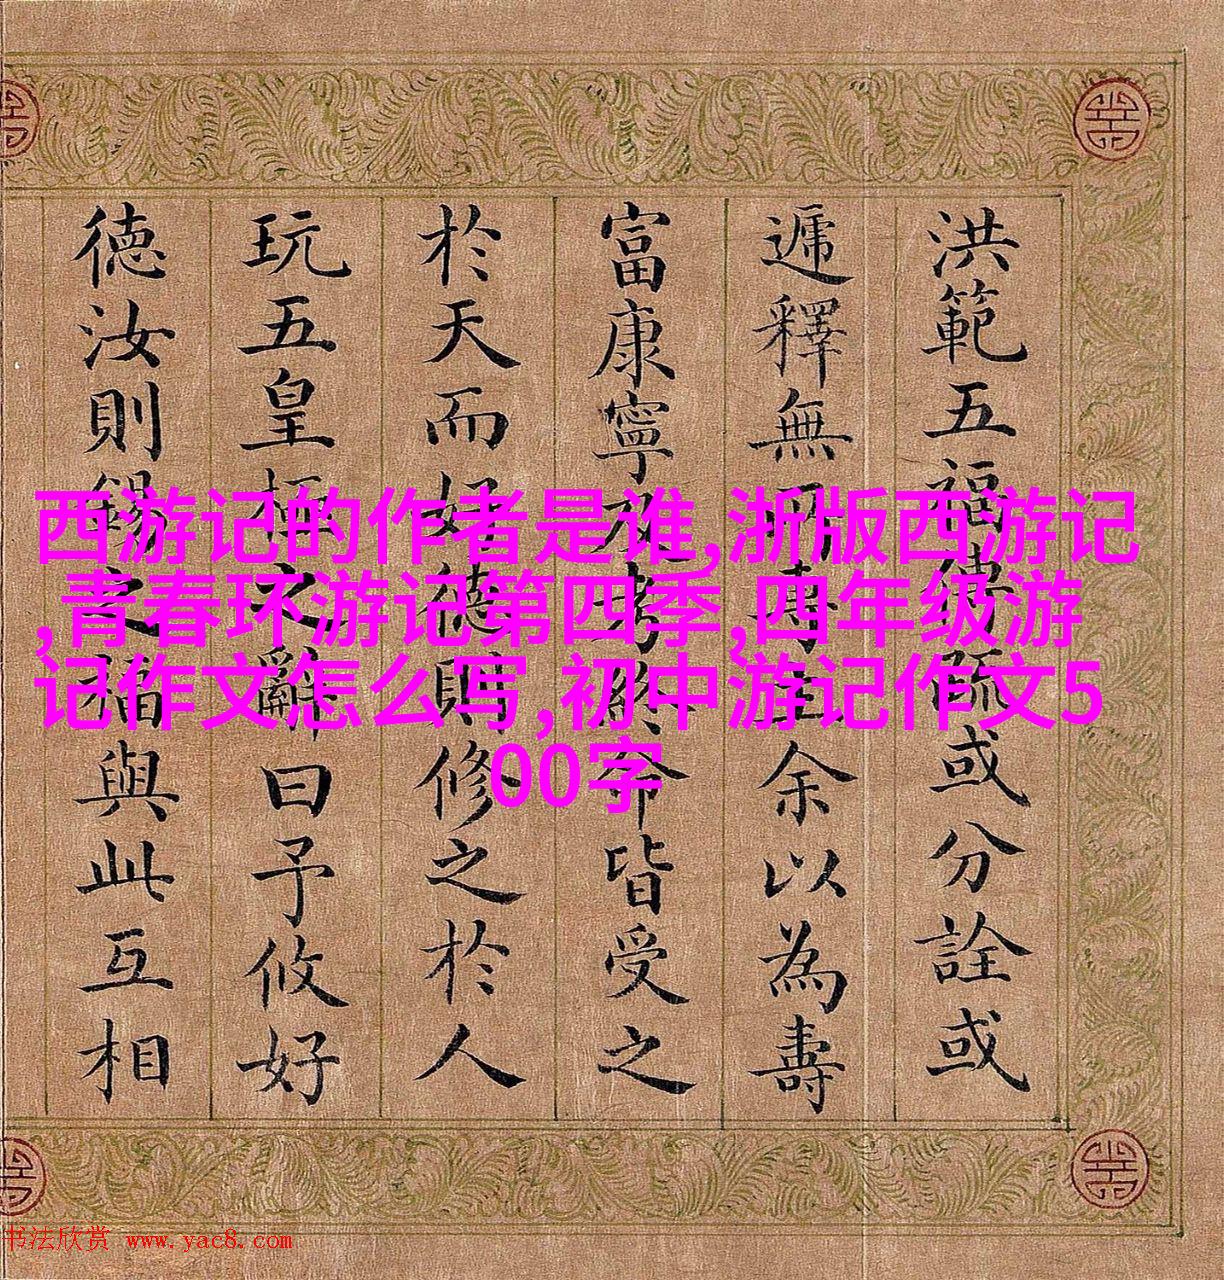 洪範五福傳疏或分詮或
遞釋無所專主余以為壽
富康寧考終命皆受之
於天而好德則修之於人
玩五皇極之辭曰予攸好
德汝則錫之福與此互相
西游记的作者是谁,浙版西游记
,青春环游记第四季,四年级游
记作文怎么写,初中游记作文5
00字
书法欣赏 www.yac8.com